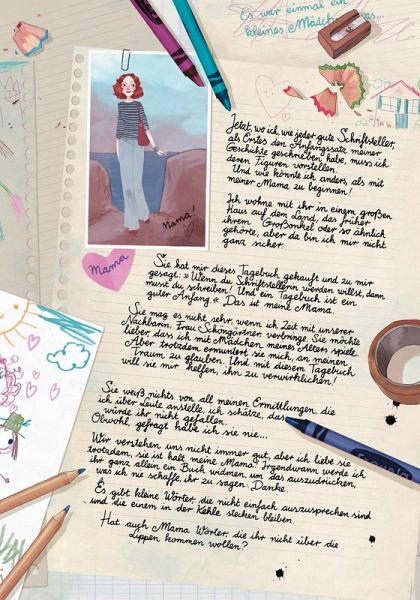 Es war einmal ein
kleines Mädchen, das...
Jetzt, wo ich wie jeder gute Schriftsteller,
als Erstes den Anfangssatz meiner
Geschichte geschrieben habe, muss ich
deren Figuren vorstellen.
Und wie könnte ich anders, als mit
meiner Mama zu beginnen!
Ich wohne mit ihr in einem großen
Haus auf dem Land, das früher
ihrem Großonkel oder so ähnlich
gehörte, aber da bin ich mir nicht
ganz sicher.
Mama!
Mama
Sie hat mir dieses Tagebuch gekauft und zu mir
gesagt: »Wenn du Schriftstellerin werden willst, dann
musst du schreiben! Und ein Tagebuch ist ein
guter Anfang.« Das ist meine Mama.
Sie mag es nicht sehr, wenn ich Zeit mit unserer
Nachbarin, Frau Schöngärtner verbringe. Sie möchte
lieber, dass ich mit Mädchen meines Alters spiele.
Aber trotzdem ermuntert sie mich, an meinen
Traum zu glauben. Und mit diesem Tagebuch
will sie mir helfen, ihn zu verwirklichen!
Sie weiß nichts von all meinen Ermittlungen, die
ich über Leute anstelle, ich schätze, das
würde ihr nicht gefallen.
Obwohl, gefragt habe ich sie nie...
Wir verstehen uns nicht immer gut, aber ich liebe sie
trotzdem, sie ist halt meine Mama! Irgendwann werde ich
ihr ganz allein ein Buch widmen, um das auszudrücken,
was ich nie schaffe, ihr zu sagen: Danke.
Es gibt kleine Wörter, die nicht einfach auszusprechen sind
und die einem in der Kehle stecken bleiben.
Hat auch Mama Wörter, die ihr nicht über die
Lippen kommen wollen?